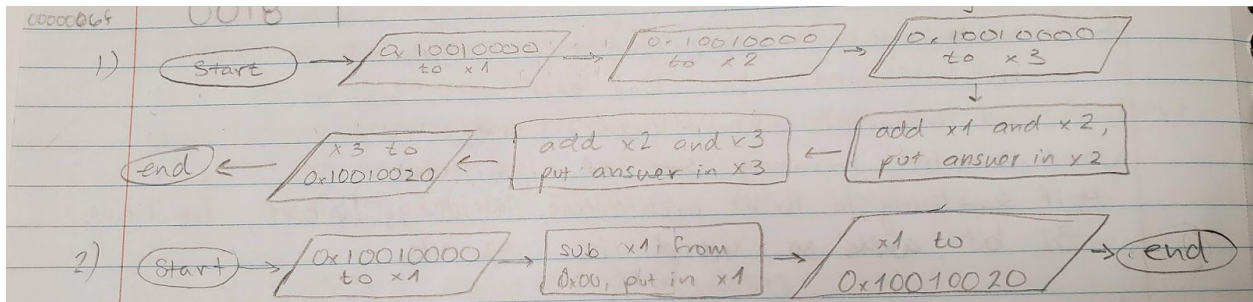 00000064
0018
1)
Start
0x10010000
to x1
0x10010000
to x2
0x10010000
to x3
add x1 and x2,
put answer in x2
add x2 and x3
put answer in x3
x3 to
0x10010020
end
2)
Start
0x10010000
to x1
sub x1 from
0x00, put in x1
x1 to
0x10010020
end